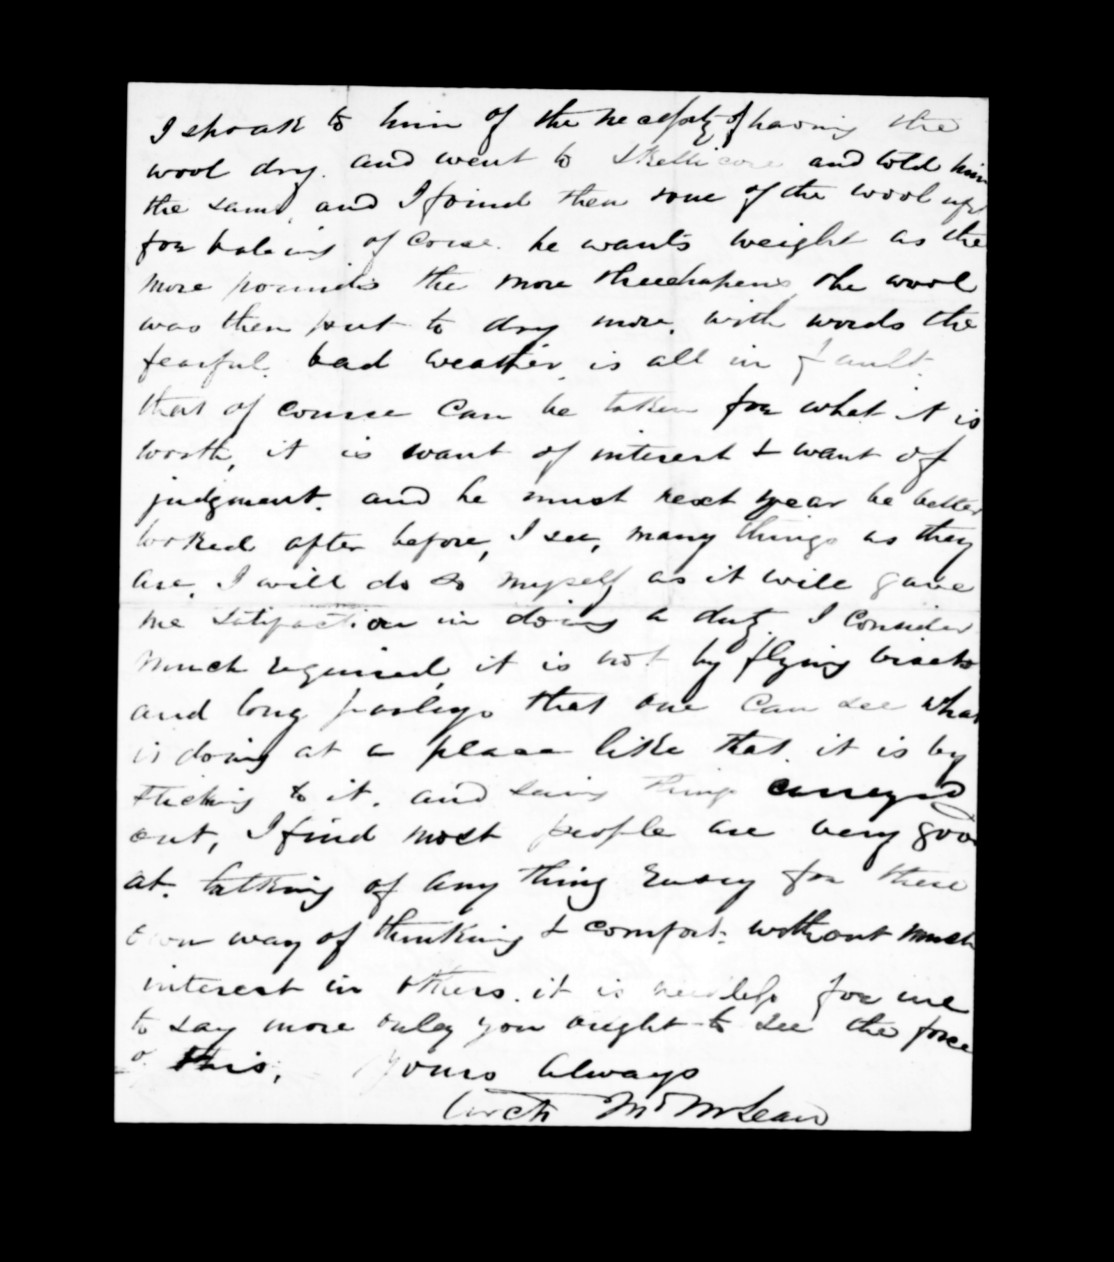 I spoak to him of the necessity of having the
wool dry. and went to and told him
the same, and I found then some of the wool up
for baleing of corse. he wants weight as the
more pounds the more the wool
was then put to dry more. with words the
fearful bad weather, is all in fault.
that of course can be taken for what it is
worth, it is want of interest & want of
judgment. and he must next year be better
looked after before, I see, many things as they
are. I will do so myself as it will gave
me satifaction in doing a duty. I consider
much required, it is not by flying visets
and long parleys that one can see what
is doing at a place like that. it is by
sticking to it. and seing things carreyed
out, I find most people are very good
at. talking of any thing for there
own way of thinking & comfort. without much
interest in others. it is needless for me
to say more only you ought to see the force
of this, Yours always
Arch Md McLean